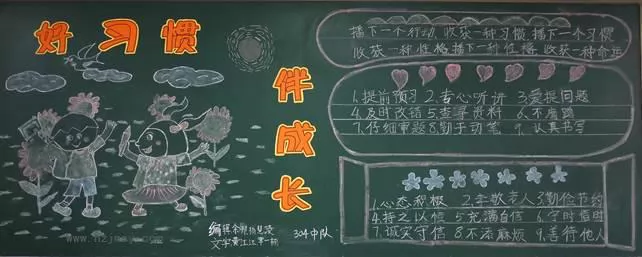 好习惯
伴成长
播下一个行动,收获一种习惯,播下一个习惯
收获一种性格,播下一种性格,收获一种命运
1.提前预习 2.专心听讲 3.爱提问题
4.及时改错 5.查寻资料 6.不磨蹭
7.仔细审题 8.勤于动笔 9.认真书写
1.心态积极 2.孝敬老人 3.勤俭节约
4.持之以恒 5.充满自信 6.守时惜时
7.诚实守信 8.不添麻烦 9.善待他人
编辑
文字
304中队